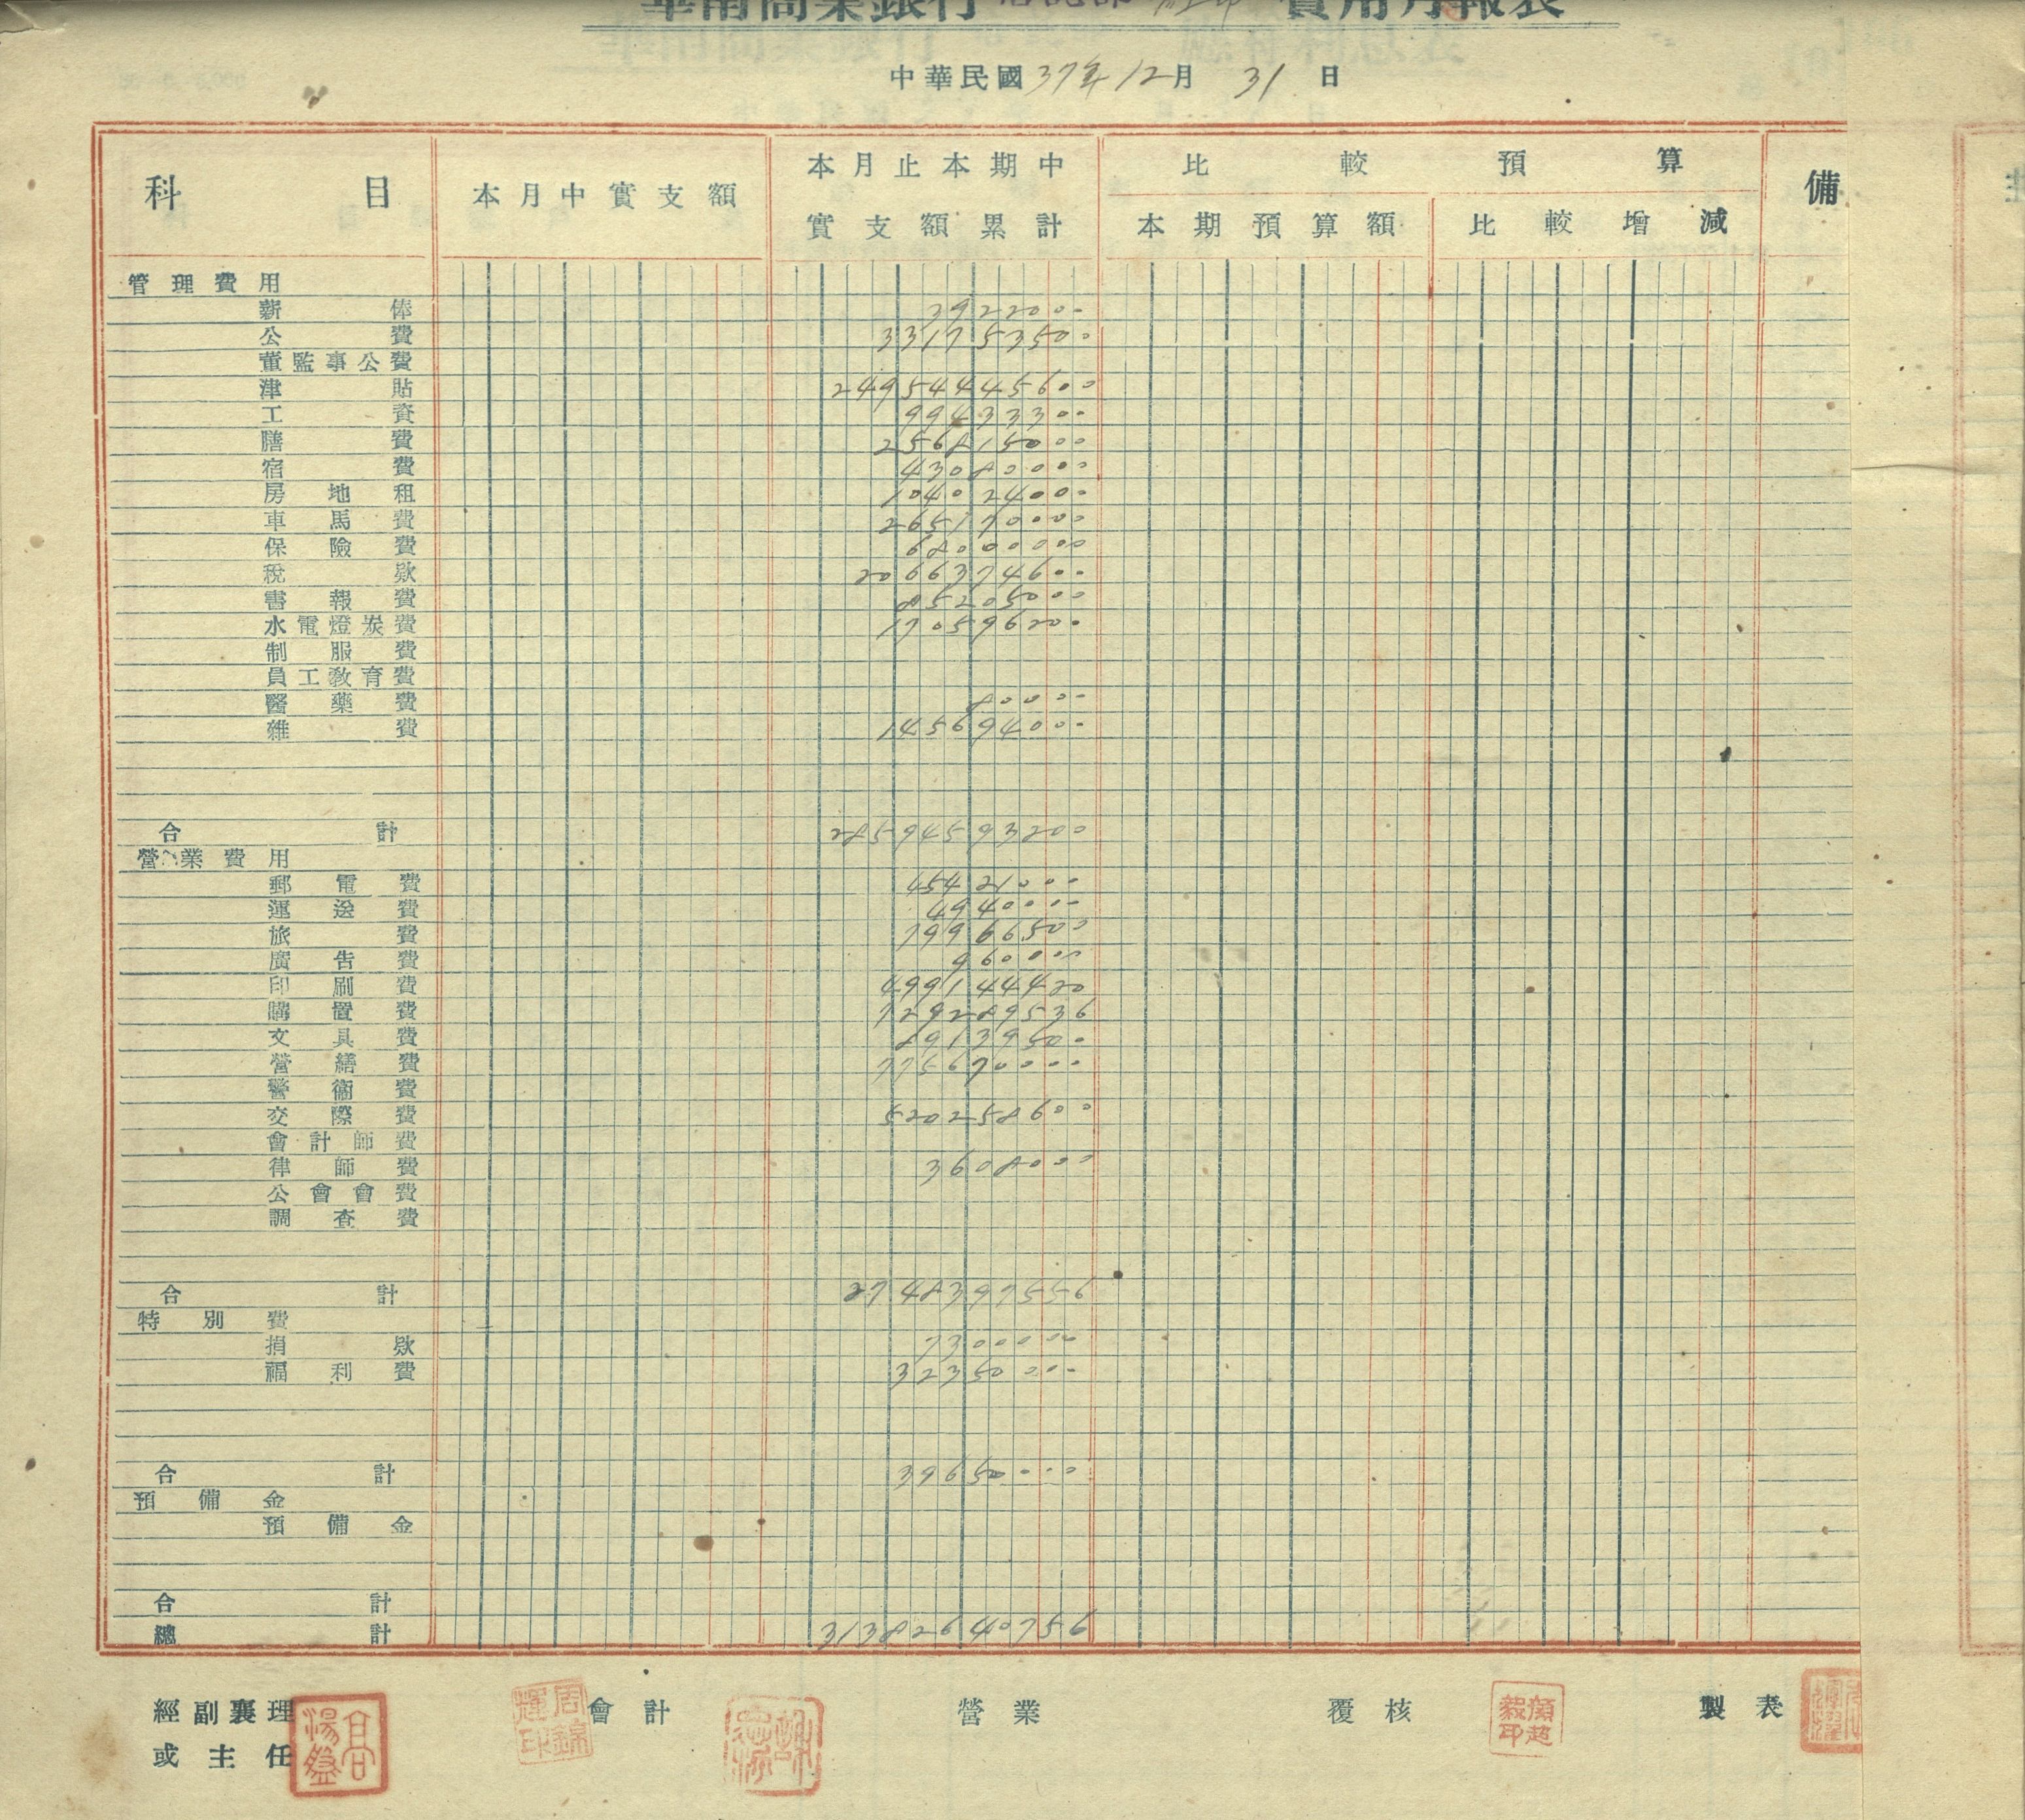 華南商業銀行 信託部 費用月報表
中華民國37年12月31日
科目 本月中實支額 本月止本期中實支額累計 比較預算 備
本期預算額 比較增減
管理費用
薪俸 2922000
公費 331753500
董監事公費
津貼 24954445600
工資 99433300
膳費 256815000
宿費 43080000
房地租 104024000
車馬費 265170000
保險費 68000000
稅款 2066374600
書報費 85205000
水電燈炭費 170596200
制服費
員工教育費
醫藥費 80000
雜費 145694000
合計 28594593200
營業費用
郵電費 45421000
運送費 4940000
旅費 79966500
廣告費 960000
印刷費 499144420
購置費 729289536
文具費 89139500
營繕費 775670000
警衞費
交際費 520258600
會計師費
律師費 3608000
公會會費
調查費
合計 2748397556
特別費
捐款 7300000
福利費 32350000
合計 39650000
預備金
預備金
合計
總計 31382640756
經副襄理 會計 營業 覆核 製表
或主任
周錦輝印
顏超毅印